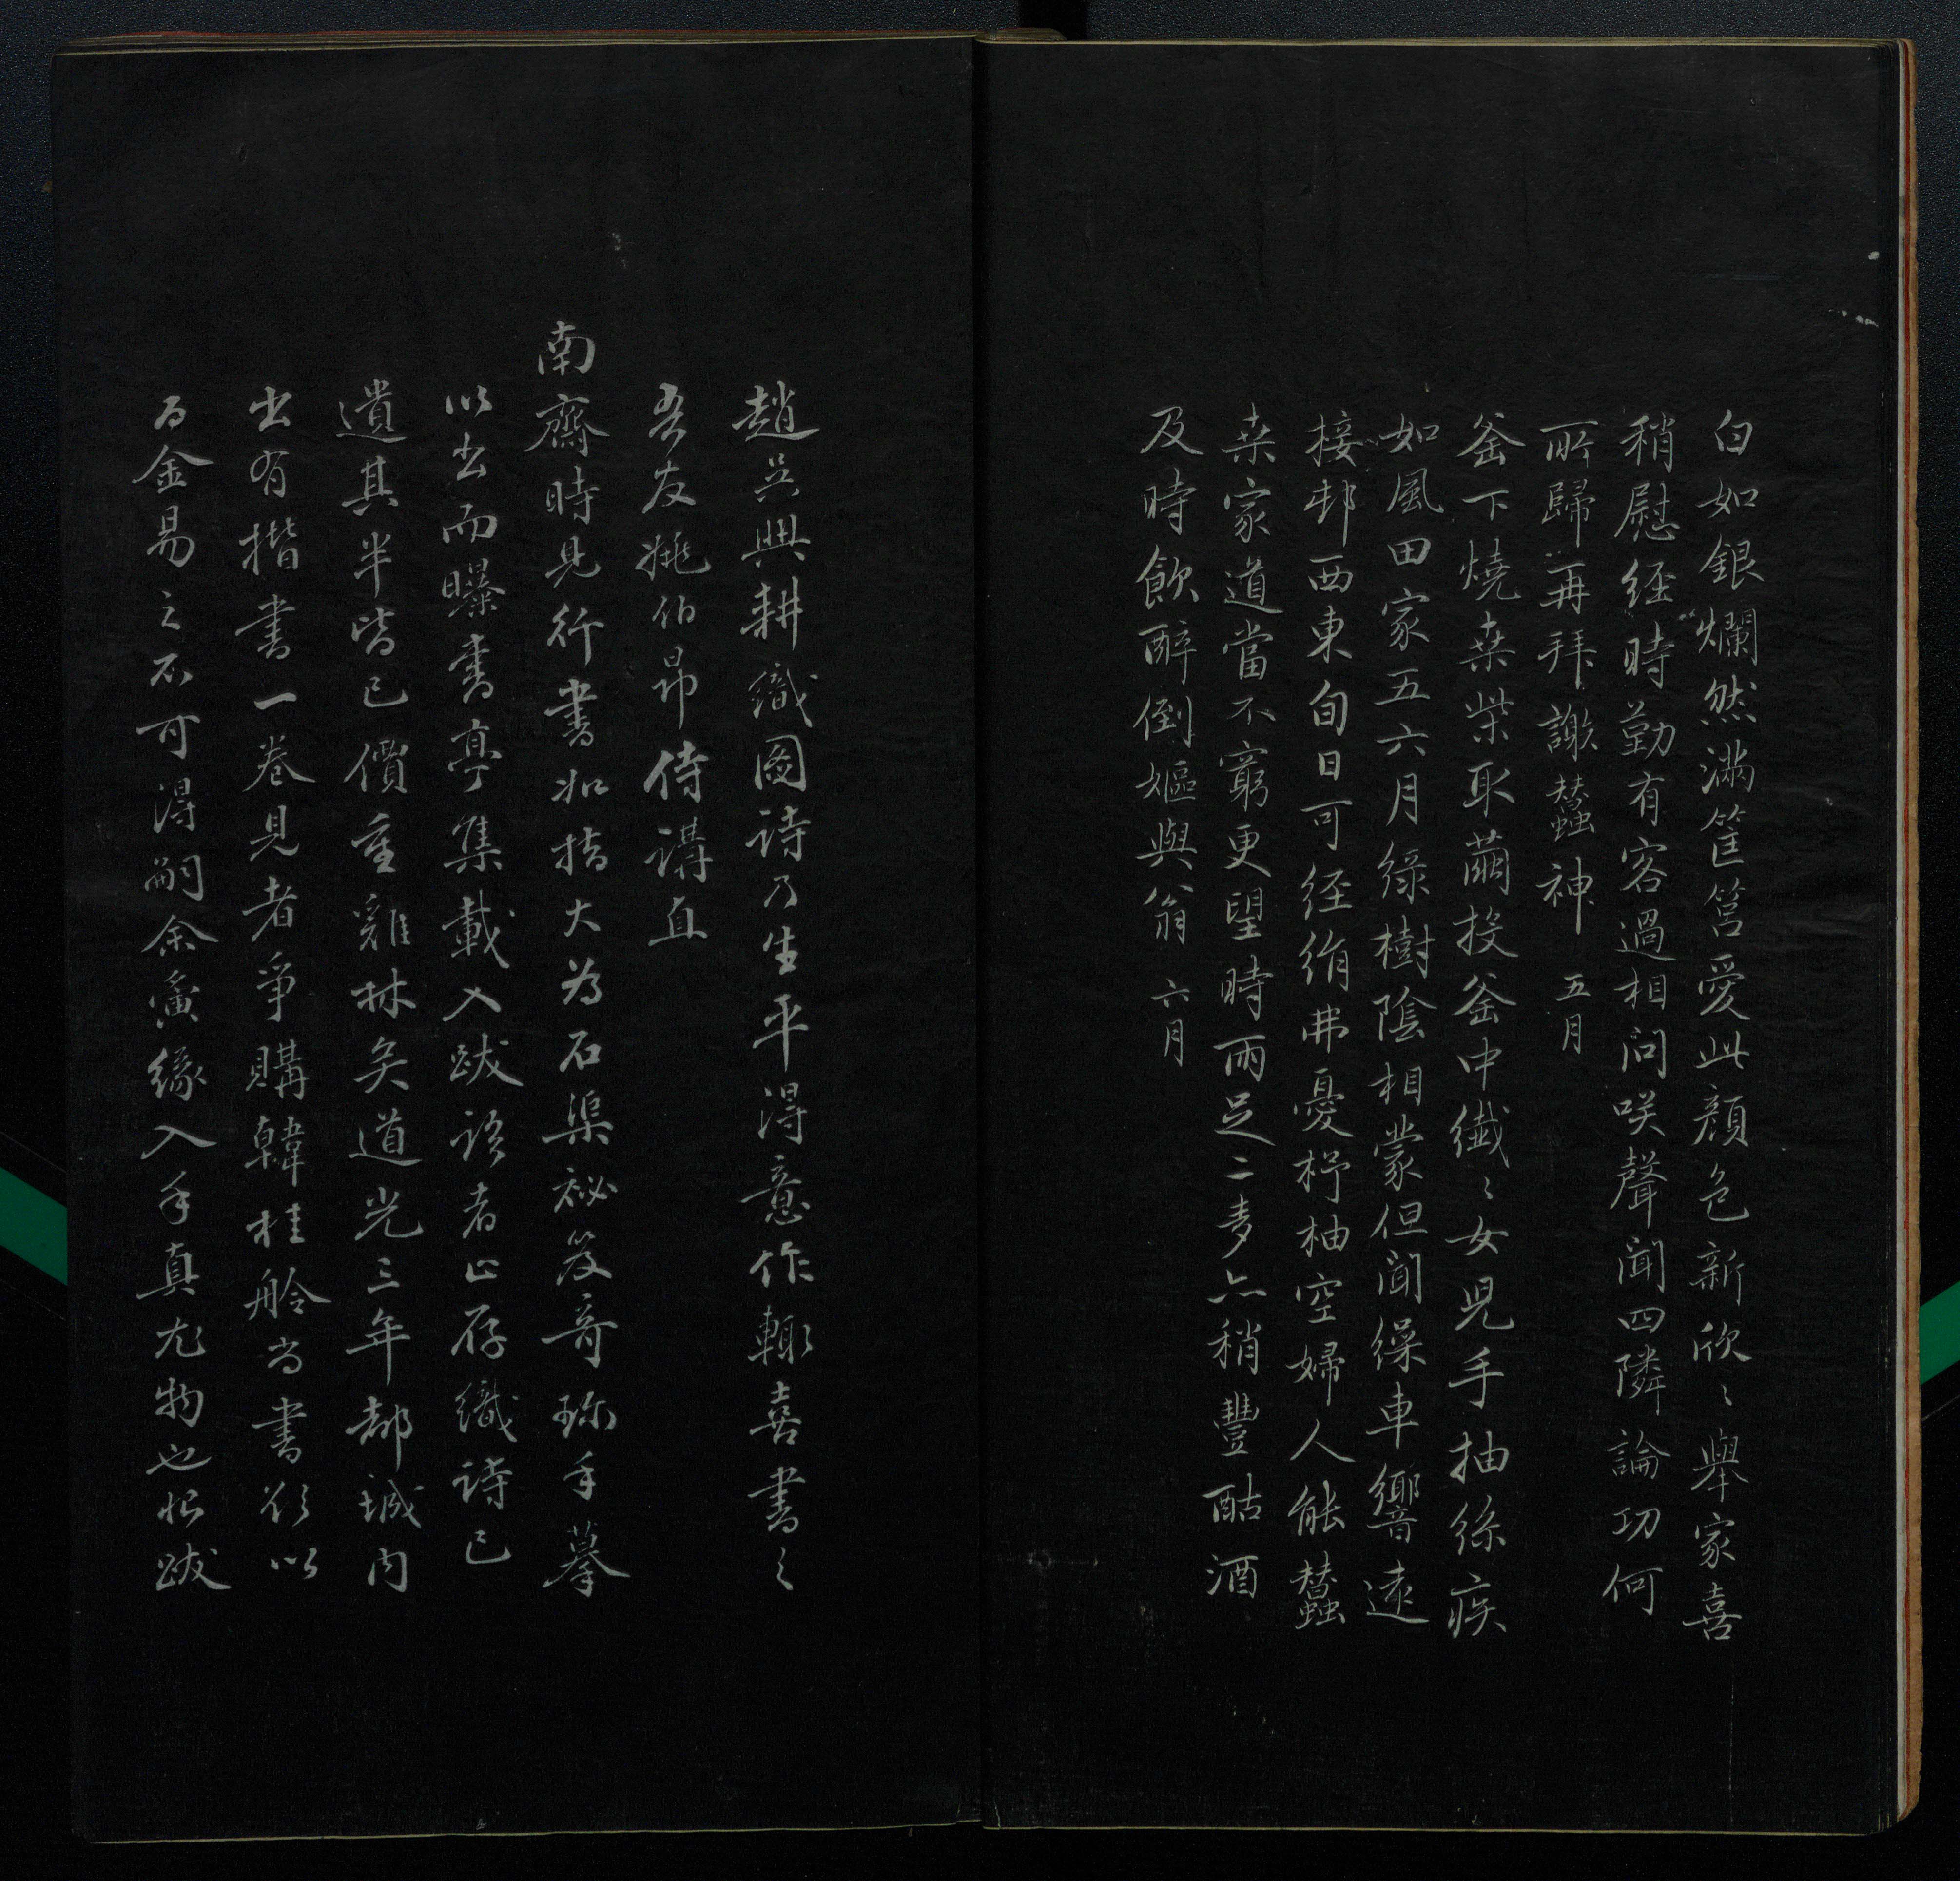 白如銀爛然滿筐筥愛此顏色新欣〻舉家喜
稍慰経時勤有客過相問咲聲聞四隣論功何
所歸再拜謝蠶神 五月
釜下燒桒柴取繭投釜中纎〻女兒手抽絲疾
如風田家五六月綠樹陰相蒙但聞繰車響遠
接邨西東旬日可経絹弗憂杼柚空婦人能蠶
桒家道當不窮更望時雨足二麥亦稍豐酤酒
及時飲醉倒嫗與翁 六月
趙吳興耕織圖詩乃生平得意作輒喜書之
吾友姚伯昂侍講直
南齋時見行書如指大為石渠祕笈奇珎手摹
以出而曝書亭集載入跋語者止存織詩已
遺其半皆已價重雞林矣道光三年都城內
出有楷書一卷見者爭購韓桂舲尚書欲以
百金易之不可得嗣余夤緣入手真尤物也松跋